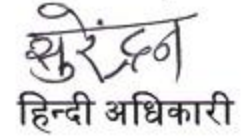 सुरेंद्रन
हिन्दी अधिकारी